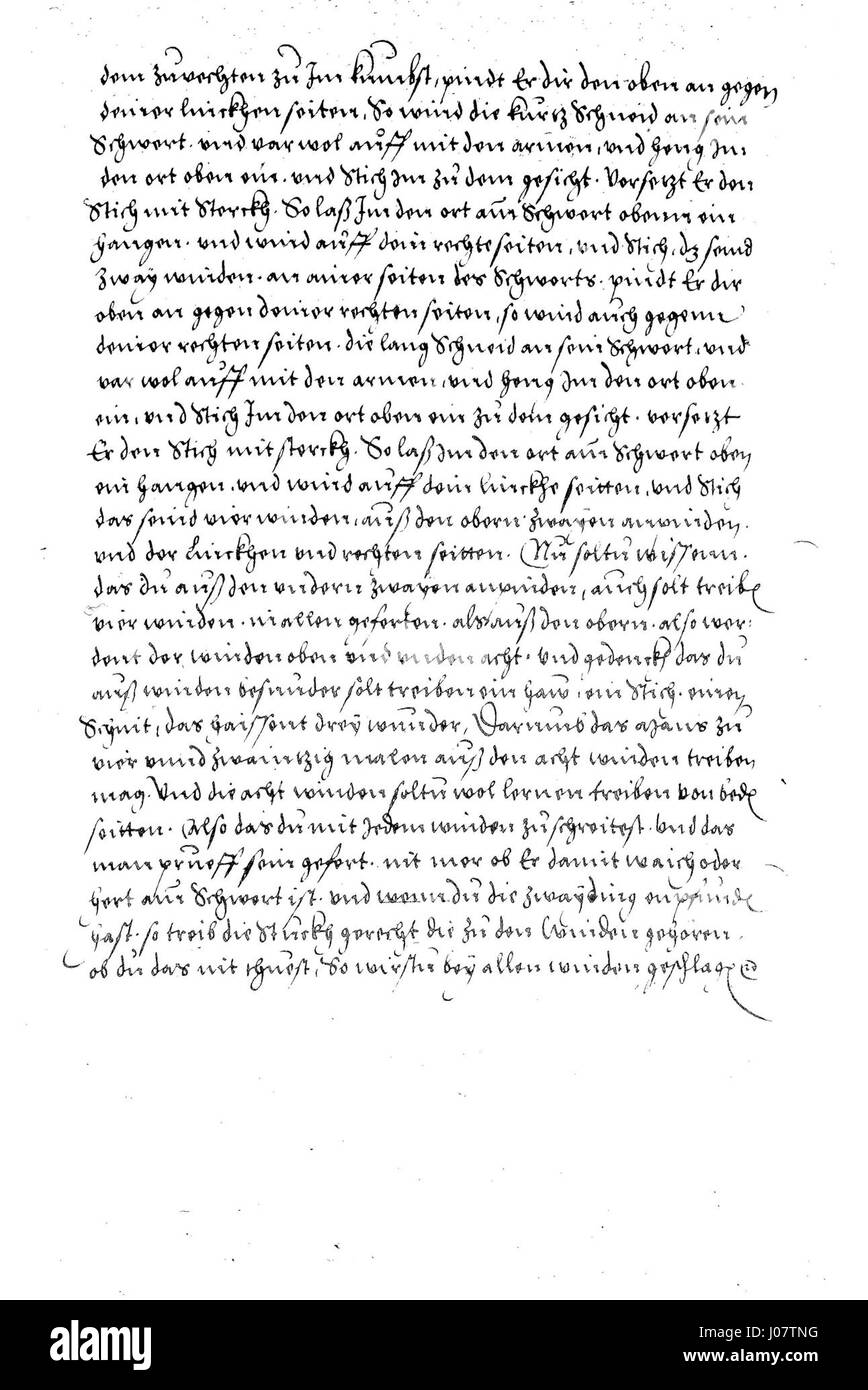 dem zuvechten zu Im kumbst, pindt Er dir den oben an gegen
deiner linckhen seiten, So wind die kurtz Schneid an sein
Schwert. und var wol auff mit den armen, und heng Im
den ort oben ein. und Stich Im zu dem gesicht. Versetzt Er den
Stich mit Sterckh. So laß Im den ort am Schwert oben ein
hangen. und wind auff dein rechte seiten, und Stich, dz seind
zway winden. an ainer seiten des Schwerts. pindt Er dir
oben an gegen deiner rechten seiten, so wind auch gegenn
deiner rechten seiten. die lang Schneid an sein Schwert, und
var wol auff mit den armen, und heng Im den ort oben.
ein, und Stich Im den ort oben ein zu dem gesicht. versetzt
Er den Stich mit sterckh. So laß Im den ort am Schwert oben
ein hangen. und wind auff dein linckhe seitten, und Stich
das seind vier winden, auß den obern zwayen anwinden.
und der Linckhen und rechten seitten. Nu soltu wissenn.
das du auß den undern zwayen anpinden, auch solt treiben
vier winden. in allen geferten. als auß den obern. also wer:
dent der winden oben und unden acht. und gedenckh das du
auß winden besunder solt treiben ein haw, ein Stich. einen
Schnit, das haissent drey wunder, Darumb das mans zu
vier unnd zwaintzig malen auß den acht winden treiben
mag. Und die acht winden soltu wol lernen treiben von beden
seitten. Also das du mit Jedem winden zu schreitest. und das
man prueff sein gefert. nit mer ob Er damit waich oder
hert am Schwert ist. und wenn du die zway ding enpfunden
hast. so treib die Stuckh gerecht die zu den Winden gehören.
ob du das nit thuest, So wirstu bey allen winden geschlagen
alamy
Image ID: J07TNG
www.alamy.com